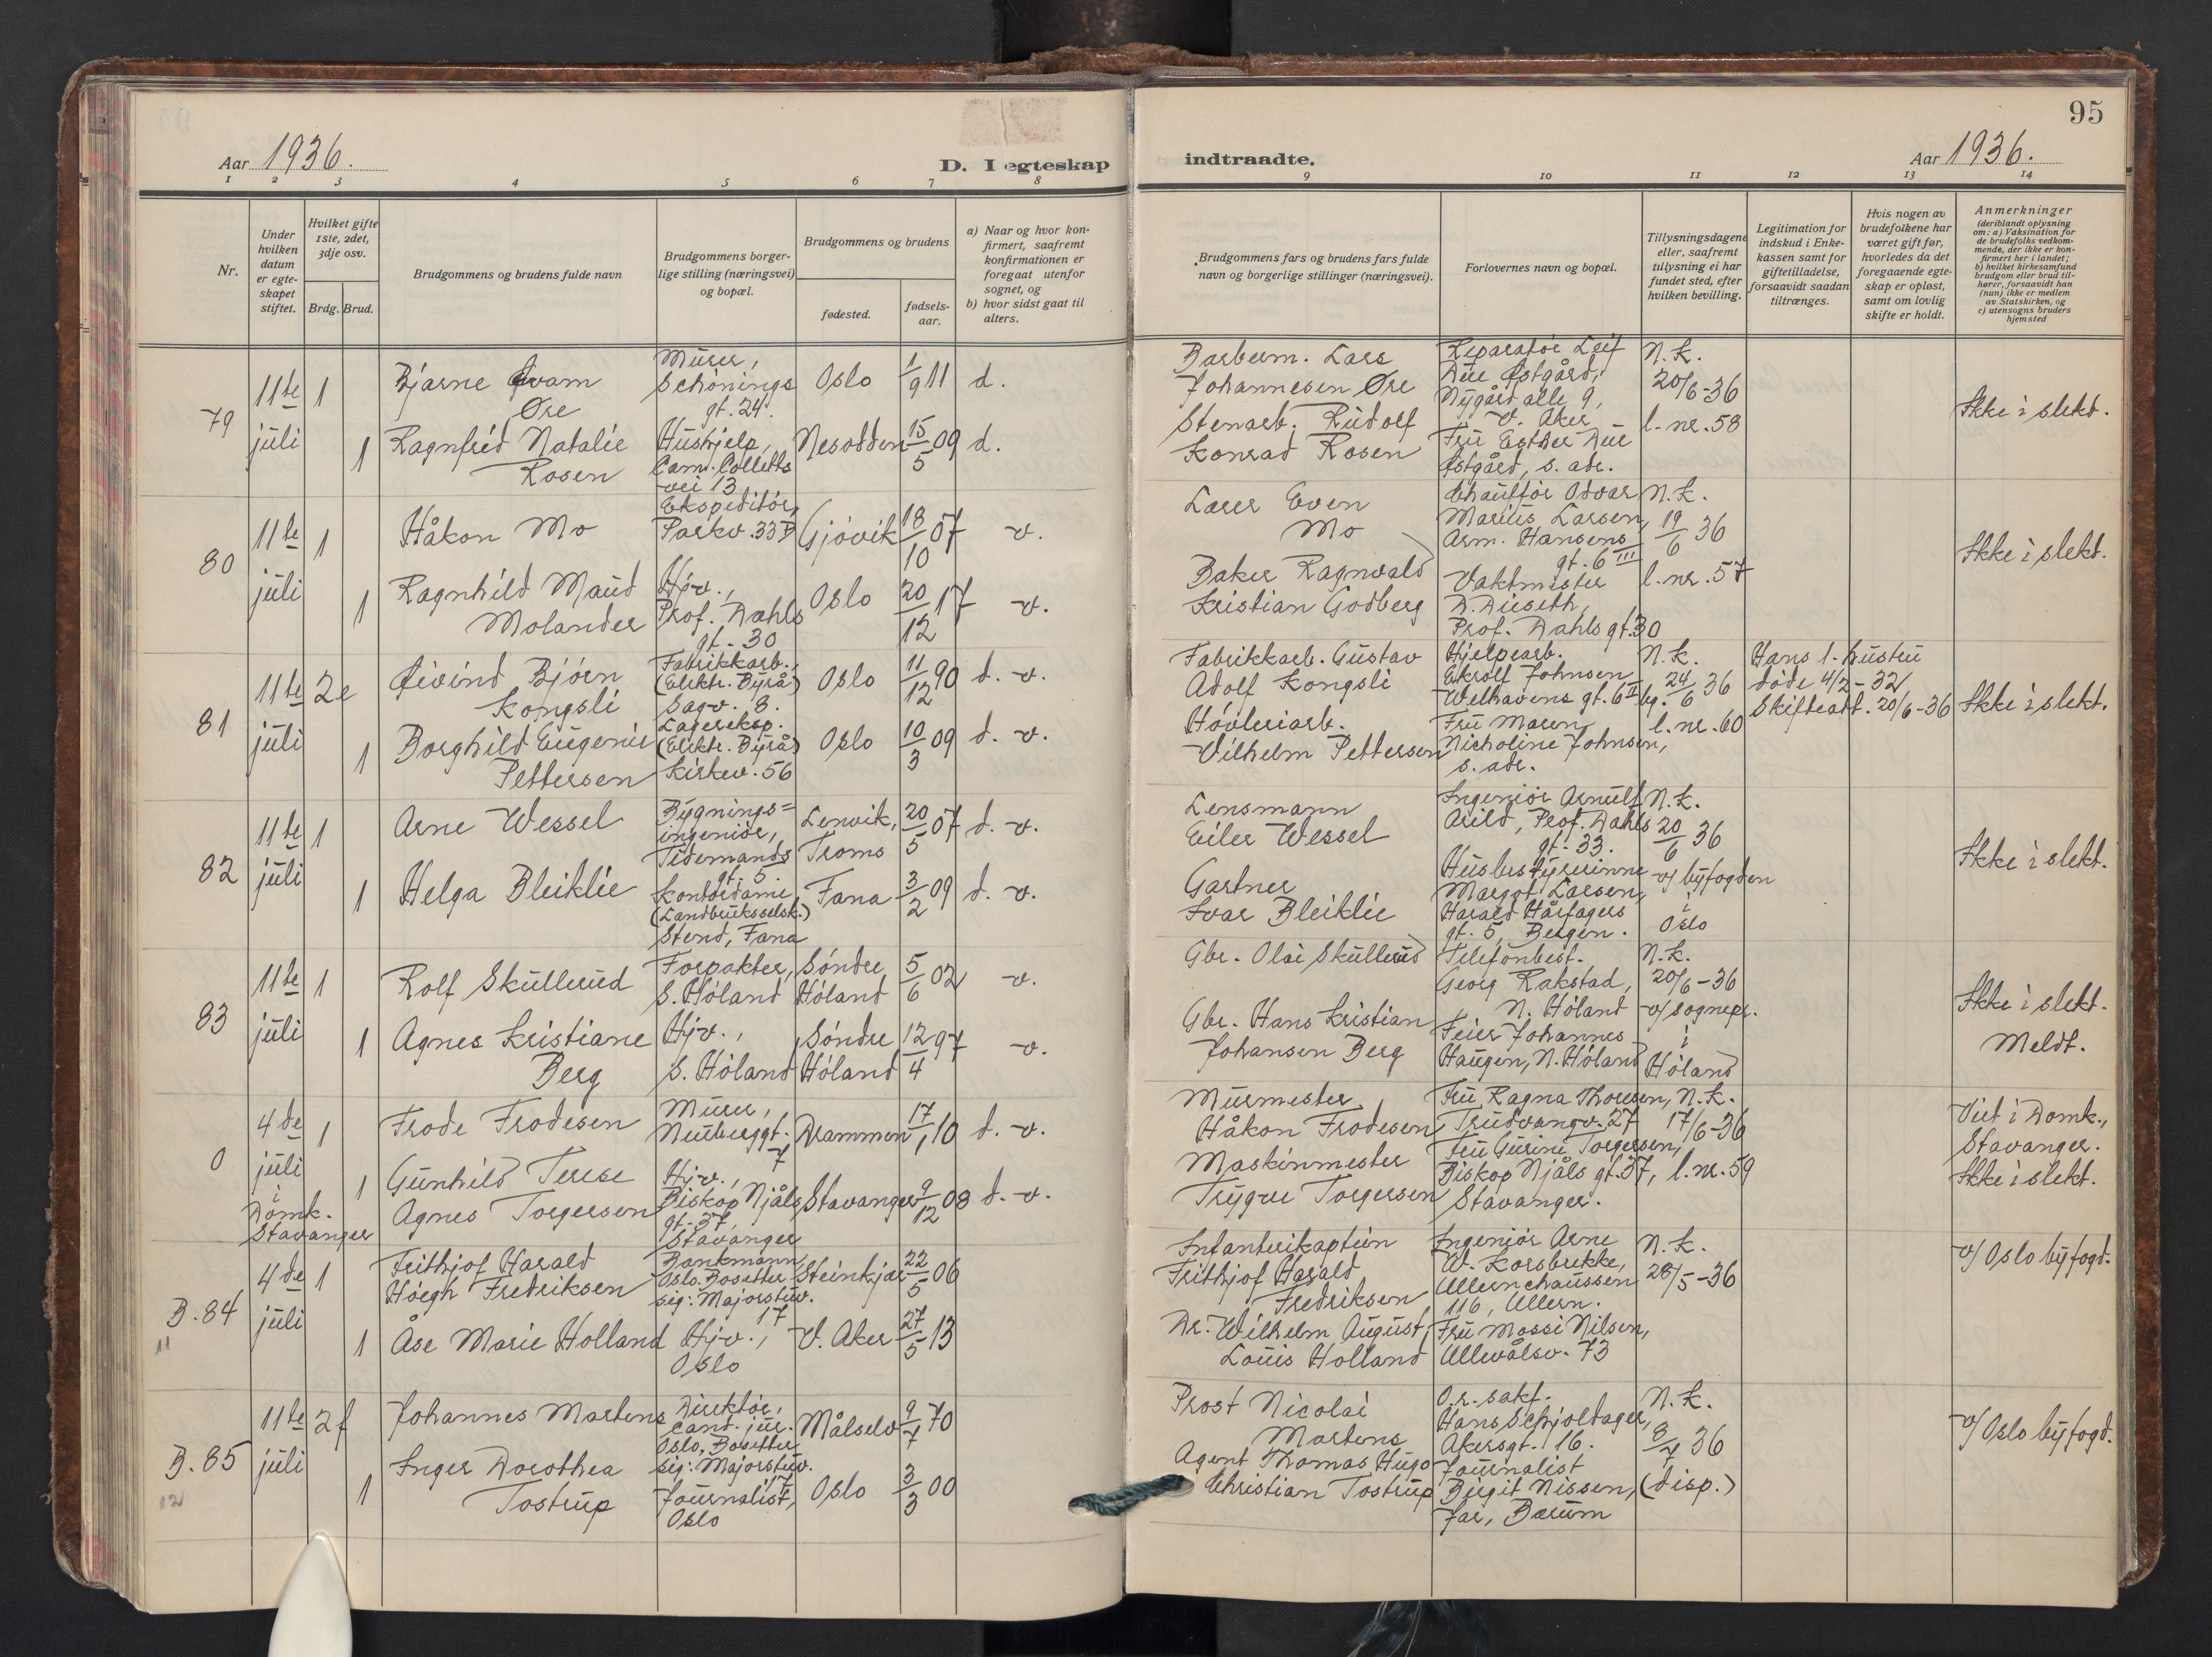 95
Aar 1936.
D. I egteskap
indtraadte.
Aar 1936.
1 2 3 4 5 6 7 8
9 10 11 12 13 14
Nr.
Under hvilken datum er egteskapet stiftet.
Hvilket gifte 1ste, 2det, 3dje osv.
Brdg. Brud.
Brudgommens og brudens fulde navn
Brudgommens borgerlige stilling (næringsvei) og bopæl.
Brudgommens og brudens
fødested.
fødselsaar.
a) Naar og hvor konfirmert, saafremt konfirmationen er foregaat utenfor sognet, og
b) hvor sidst gaat til alters.
Brudgommens fars og brudens fars fulde navn og borgerlige stillinger (næringsvei).
Forlovernes navn og bopæl.
Tillysningsdagene eller, saafremt tillysning ei har fundet sted, efter hvilken bevilling.
Legitimation for indskud i Enkekassen samt for giftetilladelse, forsaavidt saadan tiltrænges.
Hvis nogen av brudefolkene har været gift før, hvorledes da det foregaaende egteskap er opløst, samt om lovlig skifte er holdt.
Anmerkninger
(deriblandt oplysning om: a) Vaksination for de brudefolks vedkommende, der ikke er konfirmert her i landet;
b) hvilket kirkesamfund brudgom eller brud tilhører, forsaavidt han (hun) ikke er medlem av Statskirken, og
c) utensogns bruders hjemsted
79
11te juli
1
Bjarne Qvam Øre
Murer, Schönings gt. 24.
Oslo
1/9 11
d.
Barberm. Lars Johannesen Øre
Reparatör Leif Due Østgård, Nygård alle 9, V. Aker
N.k.
20/6-36
l. nr. 58
Ikke i slekt.
1
Ragnfrid Natalie Rosen
Hushjelp, Cam. Colletts vei 13
Nesodden
15/5 09
d.
Stenarb. Rudolf Konrad Rosen
Fru Esther Due Østgård, s. adr.
80
11te juli
1
Håkon Mo
Ekspeditör, Parkv. 33 B
Gjövik
18/10 07
v.
Lærer Even Mo
Chaufför Odvar Marius Larsen, Arm. Hansens gt. 6 III
N.k.
19/6 36
l. nr. 57
Ikke i slekt.
1
Ragnhild Maud Molander
Hjv., Prof. Dahls gt. 30
Oslo
20/12 17
v.
Baker Ragnvald Kristian Godberg
Vaktmester D. Diseth, Prof. Dahls gt. 30
81
11te juli
2e
Øivind Bjørn Kongsli
Fabrikkarb., (Elektr. Byrå) Sagv. 8.
Oslo
11/12 90
d. v.
Fabrikkarb. Gustav Adolf Kongsli
Hjelpearb. Johnsen, Welhavens gt. 6 II bg.
N.k.
24/6 36
l. nr. 60
Hans 1. hustru döde 4/2-32
Skifteatt. 20/6-36
Ikke i slekt.
1
Borghild Eugenie Pettersen
Lagereksp. (Elektr. Byrå) Kirkev. 56
Oslo
10/3 09
d. v.
Hövleriarb. Vilhelm Pettersen
Fru Maren Nicholine Johnsen, s. adr.
82
11te juli
1
Arne Wessel
Bygningsingeniör, Tidemands gt. 5.
Lenvik, Troms
20/5 07
d. v.
Lensmann Eiler Wessel
Ingeniör Arnulf Arild, Prof. Dahls gt. 33.
N.k.
20/6 36
v/ byfogden i Oslo
Ikke i slekt.
1
Helga Bleiklie
Kontordame (Landbruksselsk.) Stend, Fana
Fana
3/2 09
d. v.
Gartner Ivar Bleiklie
Husbestyrerinne Margot Larsen, Harald Hårfagers gt. 5, Bergen.
83
11te juli
1
Rolf Skullerud
Forpakter, S. Höland
Söndre Höland
5/6 02
v.
Gbr. Olai Skullerud
Telefonbest. Georg Rakstad, N. Höland
N.k.
20/6-36
v/ sognepr. i Höland
Ikke i slekt.
Meldt.
1
Agnes Kristiane Berg
Hjv., S. Höland
Söndre Höland
12/4 97
v.
Gbr. Hans Kristian Johansen Berg
Feier Johannes Haugen, N. Höland
0
4de juli
i Domk. Stavanger
1
Frode Frodesen
Murer, Neuberggt. 7
Drammen
17/1 10
d. v.
Murmester Håkon Frodesen
Fru Ragna Thoresen, Trudvangv. 27
N.k.
17/6-36
l. nr. 59
Viet i Domk., Stavanger.
Ikke i slekt.
1
Gunhild Terese Agnes Torgersen
Hjv., Biskop Njåls gt. 37, Stavanger
Stavanger
9/12 08
d. v.
Maskinmester Trygve Torgersen
Fru Gurine Torgersen, Biskop Njåls gt. 37, Stavanger.
B. 84
11
4de juli
1
Frithjof Harald Höegh Fredriksen
Bankmann Oslo. Bosetter sig: Majorstuv. 17
Steinkjer
22/5 06
Infanterikaptein Frithjof Harald Fredriksen
Ingeniör Arne W. Korsbrekke, Ullernchaussen 116, Ullern.
N.k.
28/5-36
v/ Oslo byfogd.
1
Åse Marie Holland
Hjv., Oslo
V. Aker
27/5 13
Dr. Wilhelm August Louis Holland
Fru Mossi Nilsen, Ullevålsv. 73
B. 85
12
11te juli
2f
Johannes Martens
Direktör, cand. jur. Oslo, Bosetter sig: Majorstuv. 17
Målselv
9/7 70
Prost Nicolai Martens
O.r.sakf. Hans Schjoldager, Akersgt. 16.
N.k.
8/7 36
(disp.)
v/ Oslo byfogd.
1
Inger Dorothea Tostrup
Journalist, Oslo
Oslo
3/3 00
Agent Thomas Hugo Christian Tostrup
Journalist Birgit Nissen, Jar, Bærum